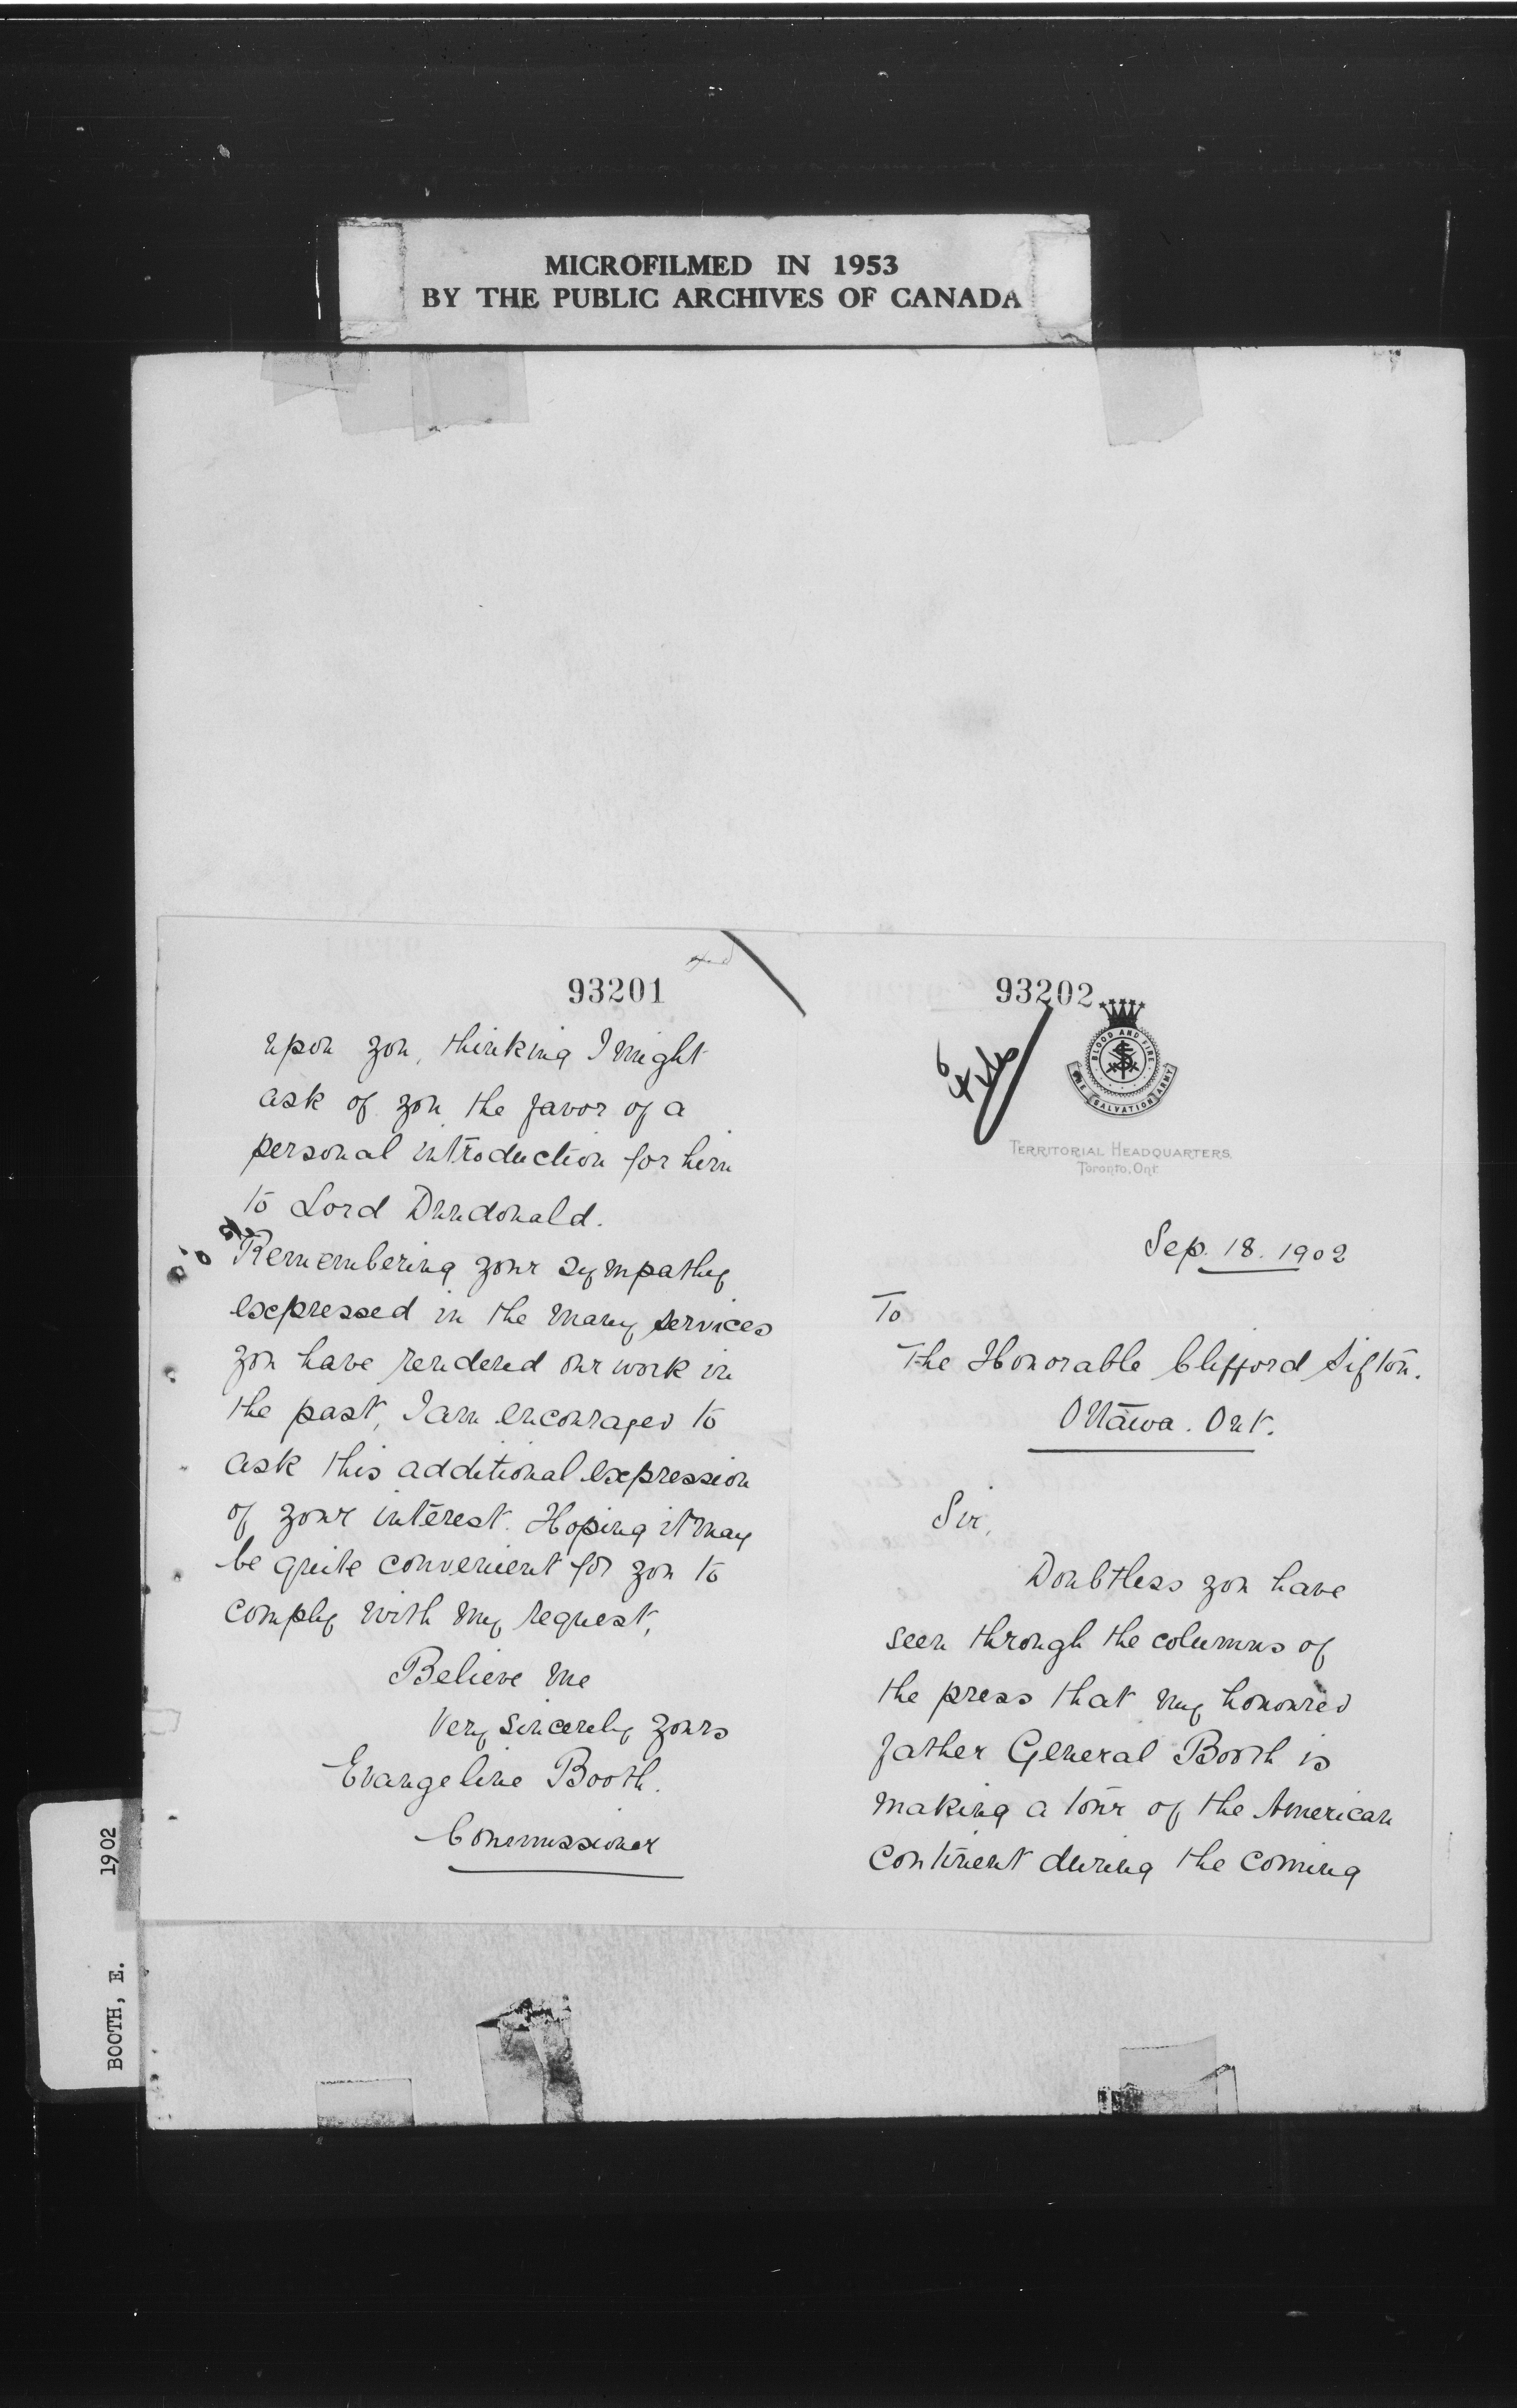 MICROFILMED IN 1953
BY THE PUBLIC ARCHIVES OF CANADA
93201
upon you, thinking I might
ask of you the favor of a
personal introduction for him
to Lord Dundonald.
Remembering your sympathy
expressed in the many services
you have rendered our work in
the past, I am encouraged to
ask this additional expression
of your interest. Hoping it may
be quite convenient for you to
comply with my request,
Believe me
Very sincerely yours
Evangeline Booth.
Commissioner
93202
File
BLOOD AND FIRE
THE SALVATION ARMY
TERRITORIAL HEADQUARTERS,
Toronto, Ont.
Sep. 18. 1902
To
The Honorable Clifford Sifton.
Ottawa. Ont.
Sir,
Doubtless you have
seen through the columns of
the press that my honoured
father General Booth is
making a tour of the American
Continent during the coming
BOOTH, E. 1902